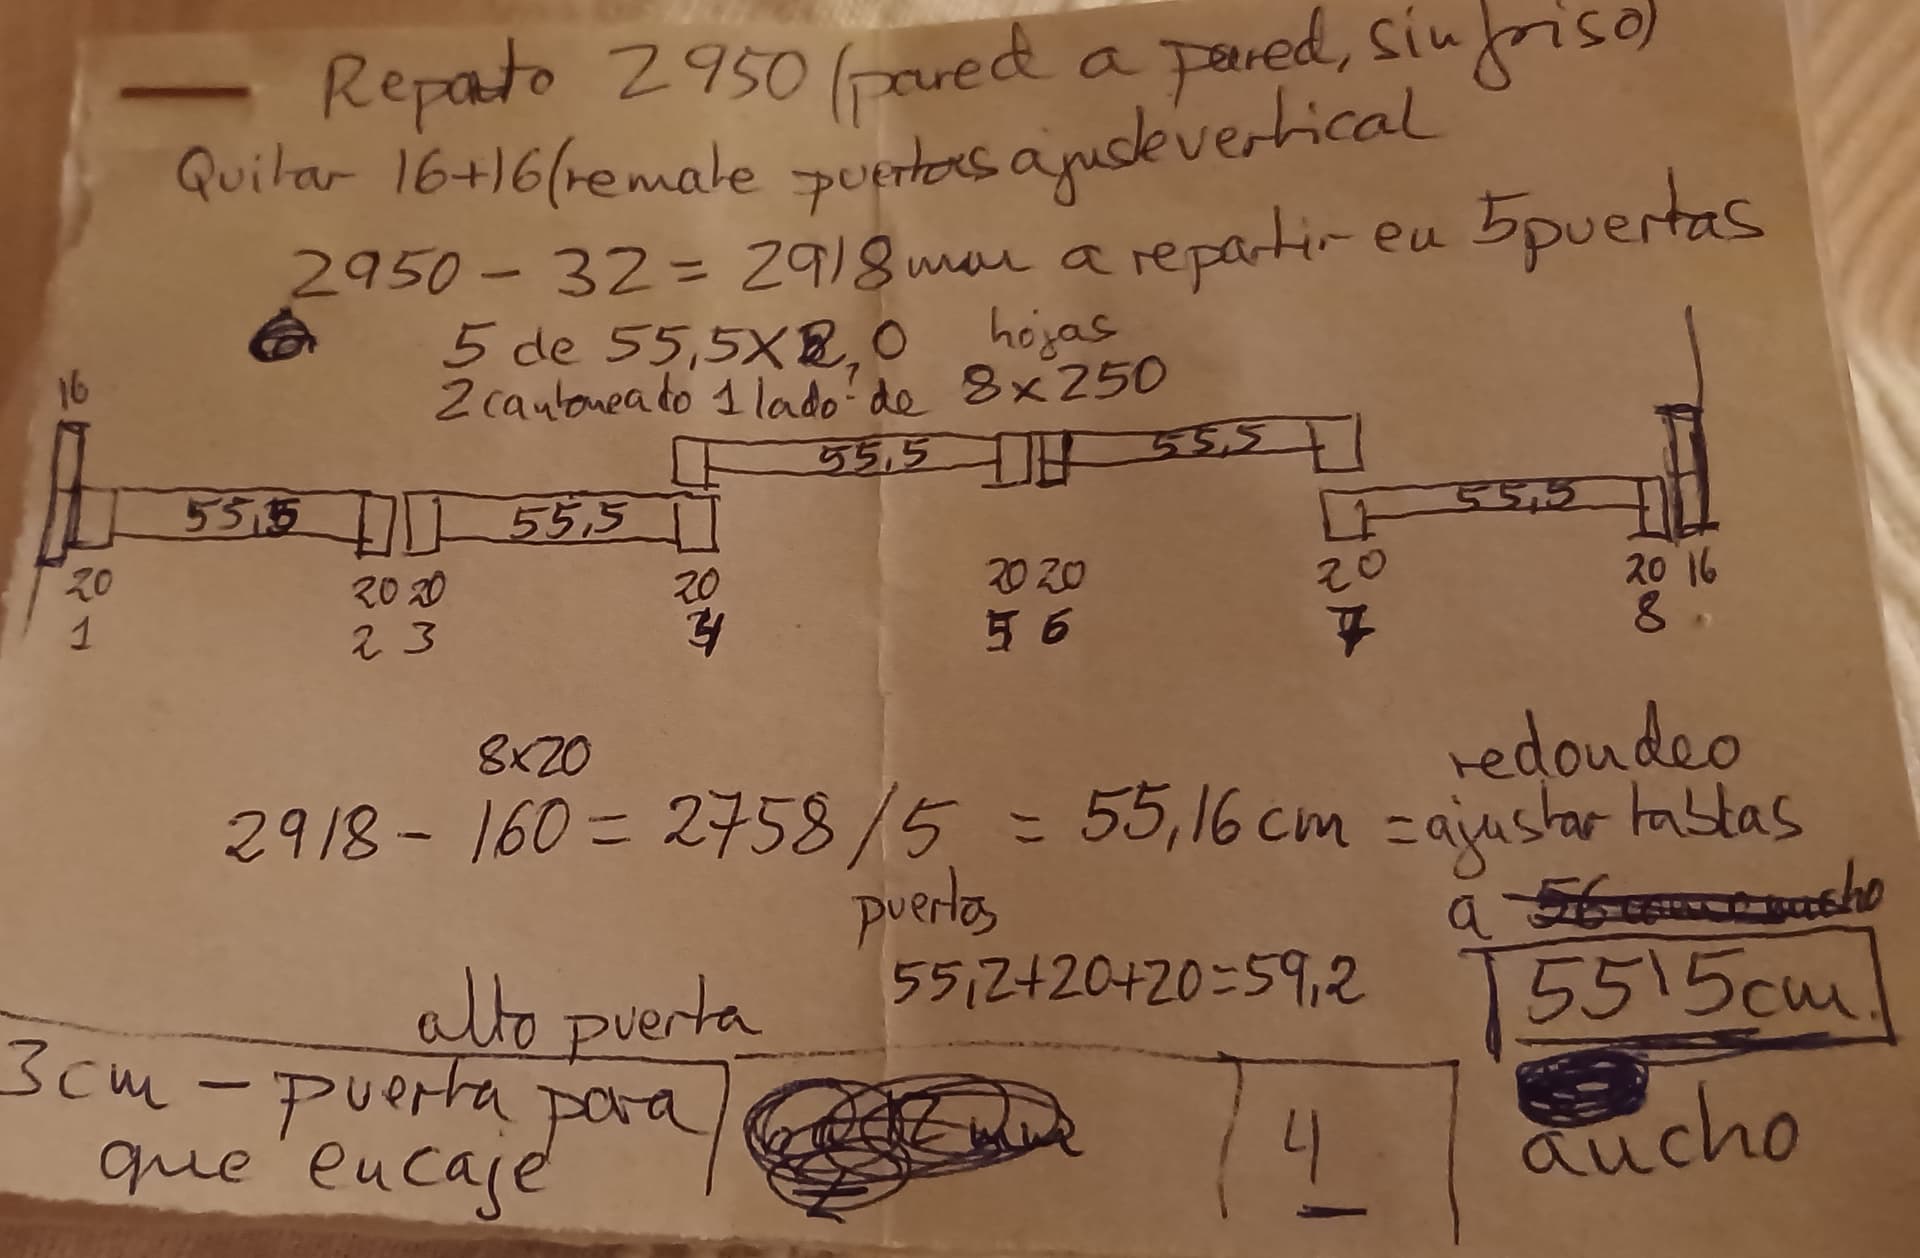 Reparto 2950 (pared a pared, sin friso)
Quitar 16+16 (remate puertas ajuste vertical
2950 - 32 = 2918 mm a repartir en 5 puertas
5 de 55,5 x 2,0 hojas
2 cantoneado 1 lado de 8 x 250
16
55,5 55,5
55,5 55,5 55,5
20 20 20 20 20 20 20 20 16
1 2 3 4 5 6 7 8
8x20
redondeo
2918 - 160 = 2758 / 5 = 55,16 cm = ajustar tablas
puertas
a
55,2+20+20=59,2
55'5 cm.
alto puerta
3 cm - puerta para
que encaje
4
ancho